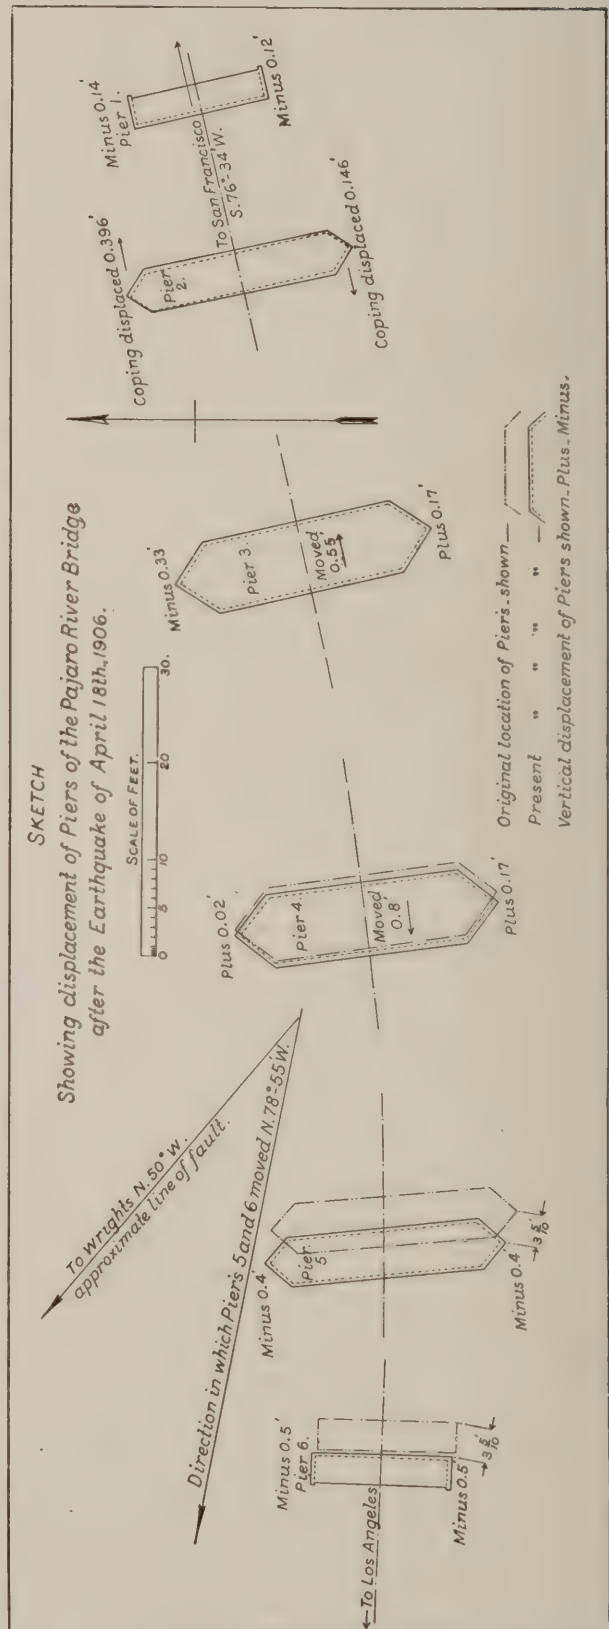 SKETCH
Showing displacement of Piers of the Pajaro River Bridge
after the Earthquake of April 18th., 1906.
SCALE OF FEET.
0 5 10 20 30.
To Wrights N. 50° W.
approximate line of fault.
Direction in which Piers 5 and 6 moved N. 78°-55' W.
←To Los Angeles
Minus 0.5'
Pier 6.
Minus 0.5'
3 5/10'
Minus 0.4'
Pier
5
Minus 0.4'
3 5/10'
Plus 0.02'
Pier 4.
Moved
0.8'
Plus 0.17'
Minus 0.33'
Pier 3.
Moved
0.55
Plus 0.17'
Coping displaced 0.396'
Pier
2.
Coping displaced 0.146'
To San Francisco
S. 76°-34' W.
Minus 0.14'
Pier 1.
Minus 0.12'
Original location of Piers - shown
Present " " " "
Vertical displacement of Piers shown - Plus - Minus.